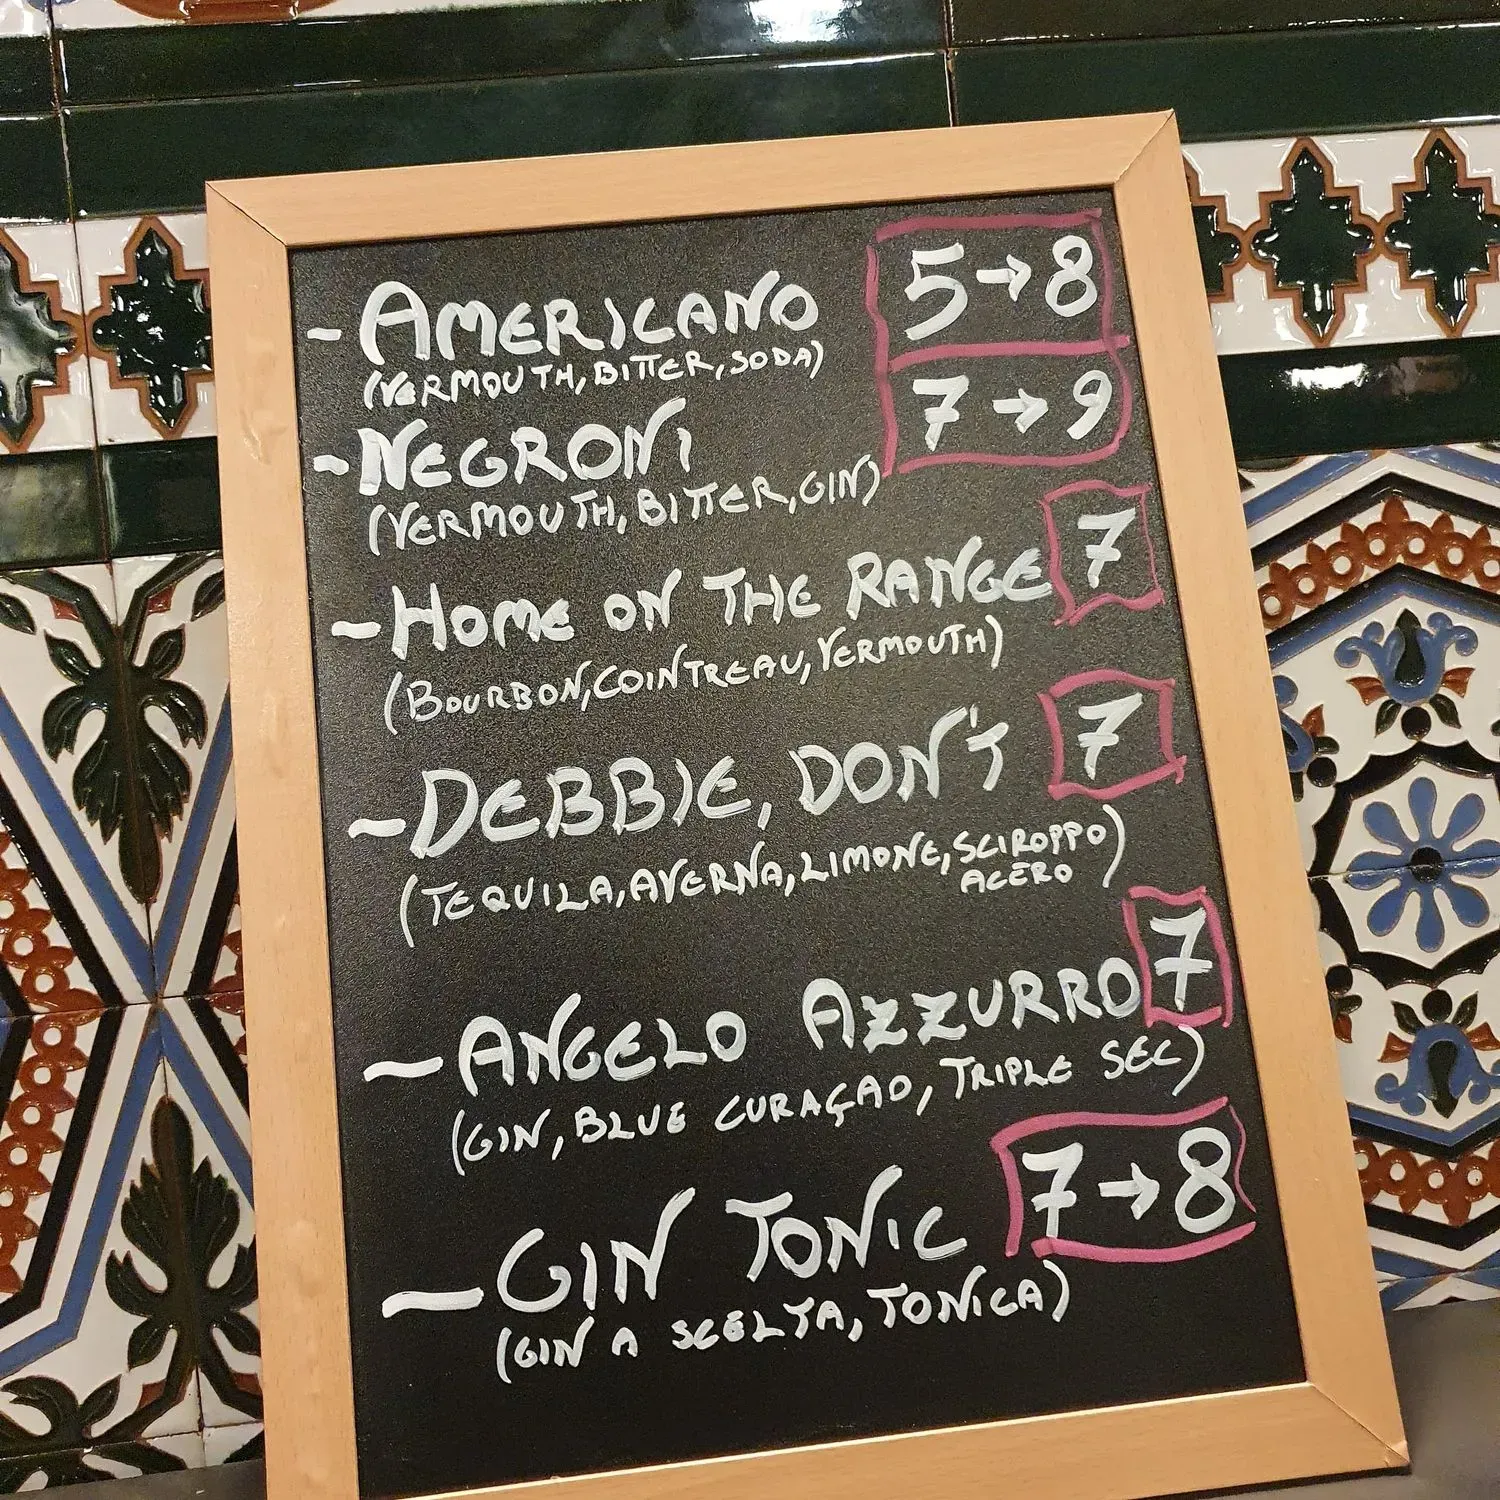 - AMERICANO 5→8
(VERMOUTH, BITTER, SODA)
- NEGRONI 7→9
(VERMOUTH, BITTER, GIN)
- HOME ON THE RANGE 7
(BOURBON, COINTREAU, VERMOUTH)
- DEBBIE, DON'T 7
(TEQUILA, AVERNA, LIMONE, SCIROPPO
ACERO)
- ANGELO AZZURRO 7
(GIN, BLUE CURAÇAO, TRIPLE SEC)
- GIN TONIC 7→8
(GIN A SCELTA, TONICA)